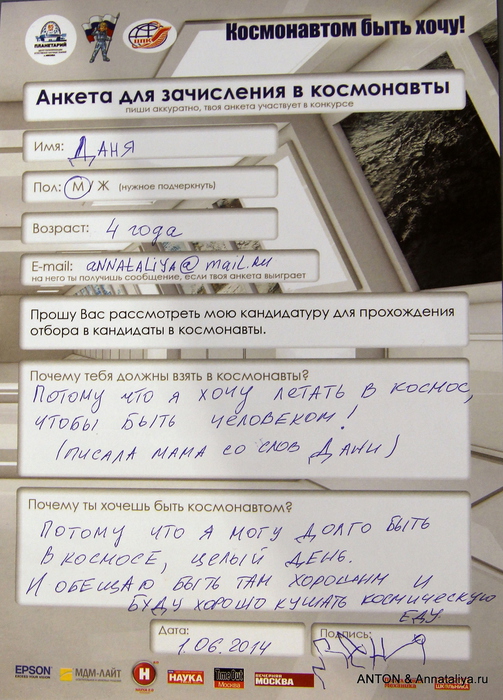 Космонавтом быть хочу!
ПЛАНЕТАРИЙ
ЦПК
Анкета для зачисления в космонавты
пиши аккуратно, твоя анкета участвует в конкурсе
Имя: ДАНЯ
Пол: М / Ж (нужное подчеркнуть)
Возраст: 4 года
E-mail: ANNATALIYA@mail.ru
на него ты получишь сообщение, если твоя анкета выиграет
Прошу Вас рассмотреть мою кандидатуру для прохождения
отбора в кандидаты в космонавты.
Почему тебя должны взять в космонавты?
ПОТОМУ ЧТО Я ХОЧУ ЛЕТАТЬ В КОСМОС,
ЧТОБЫ БЫТЬ ЧЕЛОВЕКОМ!
(ПИСАЛА МАМА СО СЛОВ ДАНИ)
Почему ты хочешь быть космонавтом?
ПОТОМУ ЧТО Я МОГУ ДОЛГО БЫТЬ
В КОСМОСЕ, ЦЕЛЫЙ ДЕНЬ.
И ОБЕЩАЮ БЫТЬ ТАМ ХОРОШИМ И
БУДУ ХОРОШО КУШАТЬ КОСМИЧЕСКУЮ
ЕДУ.
Дата: 1.06.2014
Подпись:
EPSON МДМ-ЛАЙТ Н НАУКА TimeOut Москва ВЕЧЕРНЯЯ МОСКВА Механика ШКОЛЬНИКА
ANTON & Annataliya.ru